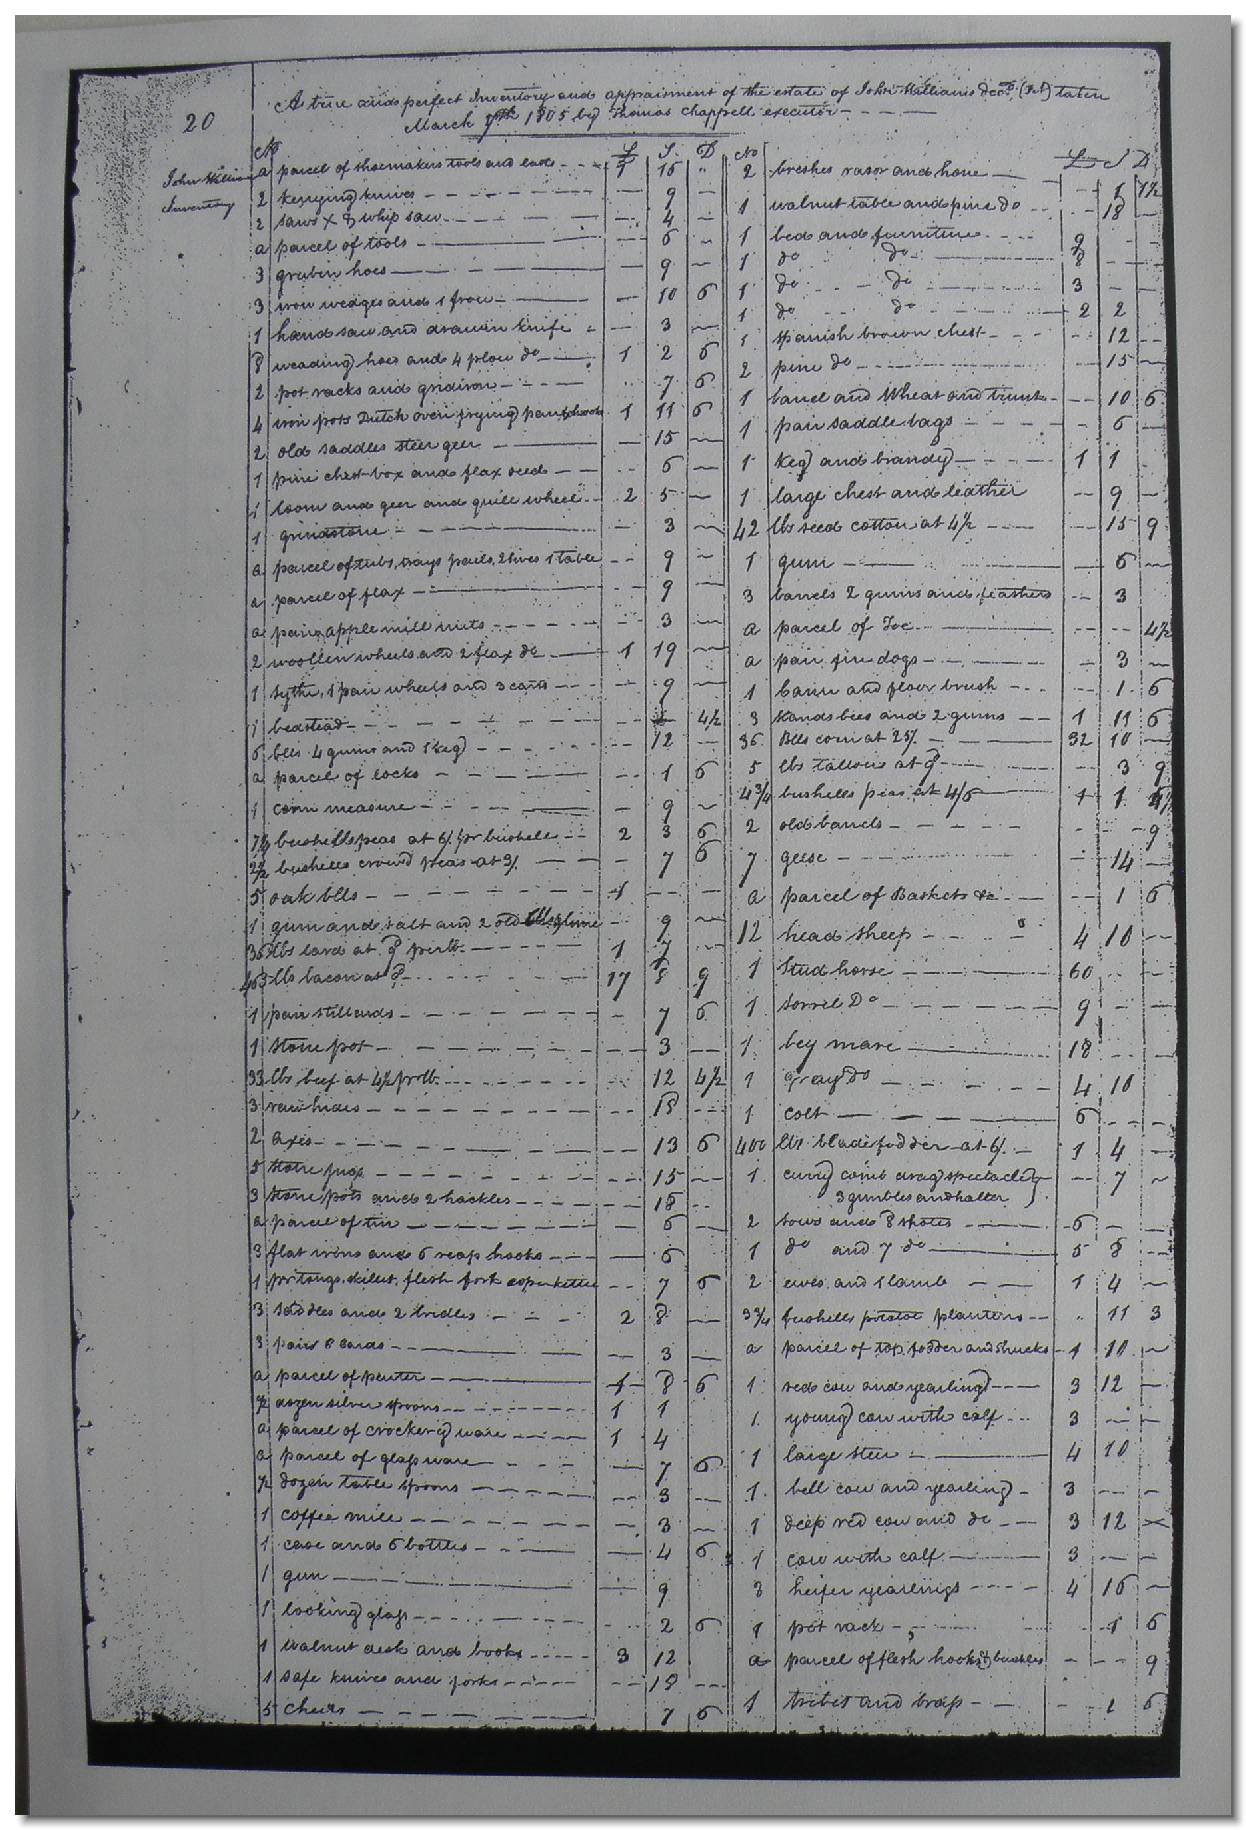 20
A true and perfect Inventory and appraisment of the estate of John Williams decd. taken
March 1805 by Thomas Chappell executor
John Williams
Inventory
No £ S. D
a parcel of shoemakers tools and 1 15 "
2 knives 9
2 saws X & whip saw 4
a parcel of tools 6
3 gruben hoes 9
3 iron wedges and 1 frow 10 6
1 hand saw and drawin knife 3
8 weading hoes and 4 plow do 1 2 6
2 pot racks and gridiron 7 6
4 iron pots Dutch oven frying pan & hooks 1 11 6
2 old saddles steer geer 15
1 pine chest box and flax seed 6
1 loom and geer and quill wheel 2 5
1 grindstone 3
a parcel of tubs, trays pails, 2 hives 1 table 9
a parcel of flax 9
a pair apple mill nuts 3
2 woollen wheels and 2 flax do 1 19
1 sythe, 1 pair wheels and 3 9
1 bedstead 4½
6 blls 4 gums and 1 keg 12
a parcel of locks 1 6
1 corn measure 9
7¼ bushells peas at 6/ pr bushell 2 3 6
2½ bushells crowd peas at 3/ 7 6
5 oak blls 1
1 gum and salt and 2 old & lime 9
36 lbs lard at 9 prlb. 1 7
463 lbs bacon at 9 17 8 9
1 pair stilliards 7 6
1 stone pot 3
33 lbs beef at 4½ prlb. 12 4½
3 raw hides 18
2 axis 13 6
5 stone jugs 15
3 stone pots and 2 hackles 18
a parcel of tin 6
3 flat irons and 6 reap hooks 6
1 pr tongs, skillet, flesh fork coper kettle 7 6
3 saddles and 2 bridles 2 8
3 pair cards 3
a parcel of peuter 1 8 6
½ dozen silver spoons 1 1
a parcel of crockery ware 1 4
a parcel of glass ware 7 6
½ dozen table spoons 3
1 coffee mill 3
1 case and 6 bottles 4 6
1 gun 9
1 looking glass 2 6
1 walnut desk and books 3 12
1 safe knives and forks 18
5 cheirs 7 6
No £ S D
2 breshes rasor and hone 1 1½
1 walnut table and pine do 18
1 bed and furniture 9
1 do do 8
1 do do 3
1 do do 2 2
1 Spanish brown chest 12
2 pine do 15
1 barrel and Wheat and trunk 10 6
1 pair saddle bags 6
1 keg and brandy 1 1
1 large chest and leather 9
42 lbs seed cotton at 4½ 15 9
1 gum 6
3 barrels 2 gums and feathers 3
a parcel of Toe 4½
a pair fire dogs 3
1 and floor brush 1 6
3 stands bees and 2 gums 1 11 6
36 Blls corn at 25/ 32 10
5 lbs tallow at 9 3 9
4¾ bushells peas at 4/6 1 1
2 old barrels 9
7 geese 14
a parcel of Baskets &c 1 6
12 head sheep 4 10
1 Stud horse 60
1 Sorrel Do 9
1 bey mare 18
1 gray do 4 10
1 colt 6
400 lbs blade fodder at 6/ 1 4
1 curry comb spectacles 7
3 gimbles and halter
2 sows and 8 shotes 6
1 do and 7 do 5 8
2 ewes and 1 lamb 1 4
3¾ bushells potatoe planters 11 3
a parcel of top fodder and shucks 1 10
1 red cow and yearling 3 12
1 young cow with calf 3
1 large steer 4 10
1 bell cow and yearling 3
1 deep red cow and do 3 12
1 cow with calf 3
3 heifer yearlings 4 16
1 pot rack 1 6
a parcel of flesh hooks & 9
1 tribit and brass 1 6